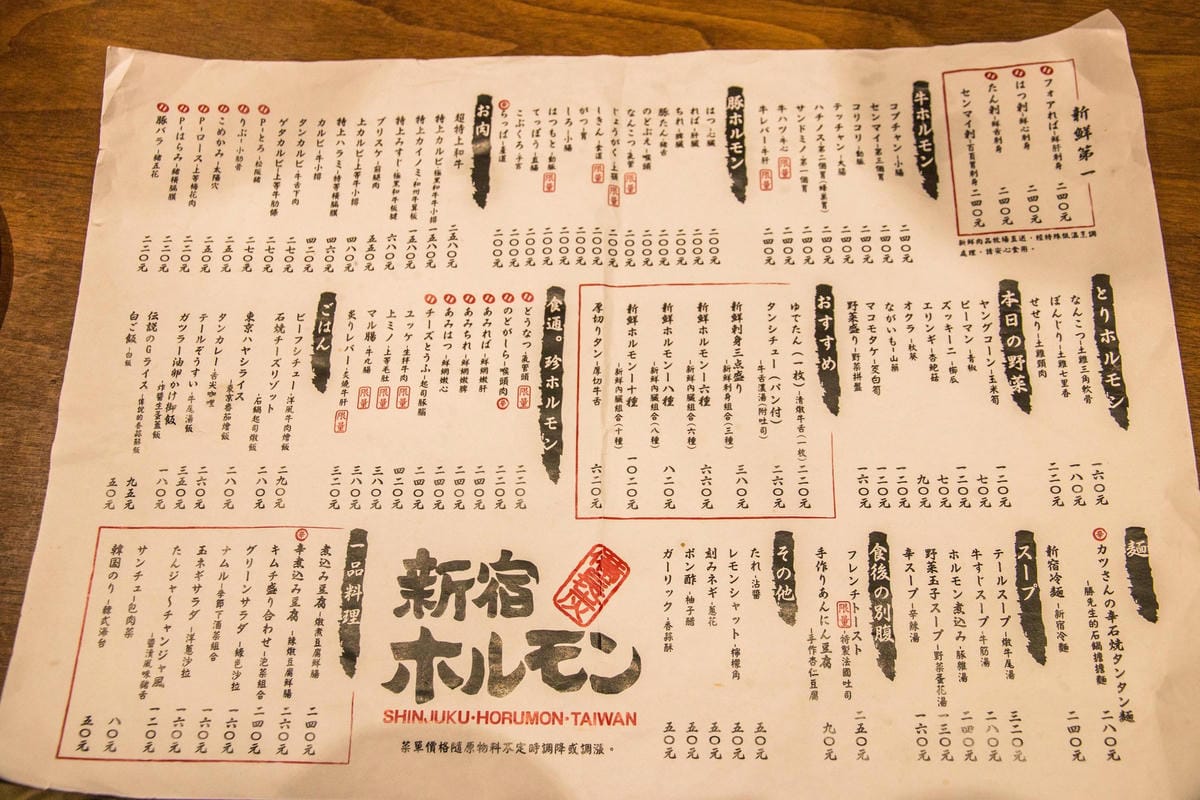 新鮮第一
フォアればー鮮肝刺身 二四〇元
はつ刺ー鮮心刺身 二四〇元
たん刺ー鮮舌刺身 二四〇元
センマイ刺ー百頁胃刺身 二四〇元
新鮮肉品牧場直送，經特殊低溫烹調
處理，請安心食用。
牛ホルモン
コプチャンー小腸 二四〇元
センマイー第三個胃 二四〇元
コリコリー動脈 二四〇元
テッチャンー大腸 二四〇元
ハチノスー第二個胃（蜂巢胃） 二四〇元
サンドミノー第一個胃 二四〇元
牛ハツー牛心 限量 二四〇元
牛レバーー牛肝 限量 二四〇元
豚ホルモン
はつー心臟 二〇〇元
ればー肝臟 二〇〇元
ちれー脾臟 二〇〇元
豚たんー豬舌 二〇〇元
のどぶえー喉頭 二〇〇元
なんこつー氣管 限量 二〇〇元
じょうがくー上顎 限量 二〇〇元
しきんー食道 限量 二〇〇元
がつー胃 二〇〇元
しろー小腸 二〇〇元
はつもとー動脈 限量 二〇〇元
てっぽうー直腸 二〇〇元
こぶくろー子宮 二〇〇元
らっぱー產道 二〇〇元
お肉
超特上和牛 二五八〇元
特上カルビー極黑和牛牛小排 一五八〇元
特上カイノミー和州牛翼板 一五八〇元
特上みすじー極黑和牛板腱 六八〇元
ブリスケー前胸肉 五五〇元
上カルビー上等牛小排 四八〇元
特上ハラミー特等橫膈膜 四六〇元
カルビー牛小排 四二〇元
タンカルビー牛舌下肉 二七〇元
ゲタカルビー上等牛肋條 二七〇元
P-とろー松阪豬 二七〇元
りぶー小肋骨 二五〇元
こめかみー太陽穴 二五〇元
P-ロースー上等梅花肉 二二〇元
P-はらみー豬橫膈膜 二二〇元
豚バラー豬五花 二二〇元
とりホルモン
なんこつー土雞三角軟骨 一六〇元
ぼんじりー土雞七里香 一八〇元
せせりー土雞頸肉 二二〇元
本日の野菜
ヤングコーンー玉米筍 一二〇元
ピーマンー青椒 七〇元
ズッキーニー櫛瓜 一二〇元
エリンギー杏鮑菇 七〇元
オクラー秋葵 九〇元
ながいもー山藥 一二〇元
マコモタケー茭白筍 一二〇元
野菜盛りー野菜拼盤 一六〇元
おすすめ
ゆでたん（一枚）ー清燉牛舌（一枚） 二二〇元
タンシチュー（パン付）ー牛舌濃湯（附吐司） 二六〇元
新鮮刺身三点盛りー新鮮刺身組合（三種） 三八〇元
新鮮ホルモンー六種ー新鮮內臟組合（六種） 六六〇元
新鮮ホルモンー八種ー新鮮內臟組合（八種） 八二〇元
新鮮ホルモンー十種ー新鮮內臟組合（十種） 一〇二〇元
厚切りタンー厚切牛舌 六二〇元
食通。珍ホルモン
どうなつー氣管頭 限量 二二〇元
のどがしらー喉頭肉 二二〇元
あみればー鮮網嫩肝 二四〇元
あみちれー鮮網嫩脾 二四〇元
あみはつー鮮網嫩心 二四〇元
チーズとうふー起司豚腦 二四〇元
ユッケー生拌牛肉 限量 四二〇元
上ミノー上等毛肚 限量 三八〇元
マル腸ー牛丸腸 限量 三八〇元
炙りレバーー炙燒牛肝 限量 三二〇元
ごはん
ビーフシチューー洋風牛肉燴飯 二九〇元
石焼チーズリゾットー石鍋起司燉飯 二八〇元
東京ハヤシライスー東京番茄燴飯 二八〇元
タンカレーー舌米咖哩 二八〇元
テールぞうすいー牛尾湯飯 二六〇元
ガツラー油卵かけ御飯ー炸醬生蛋蓋飯 三五〇元
伝説のGライスー傳說的香蒜酥飯 一八〇元
白ご飯ー白飯 九五元
五〇元
麺
カツさんの辛石焼タンタン麺ー勝先生的石鍋擔擔麵 二八〇元
新宿冷麺ー新宿冷麵 二四〇元
スープ
テールスープー燉牛尾湯 三二〇元
牛すじスープー牛筋湯 二八〇元
ホルモン煮込みー豚雜湯 二四〇元
野菜玉子スープー野菜蛋花湯 一三〇元
辛スープー辛辣湯 一六〇元
食後の別腹
フレンチトースト 限量 ー特製法國吐司 二五〇元
手作りあんにん豆腐ー手作杏仁豆腐 九〇元
その他
たれー沾醬 五〇元
レモンシャットー檸檬角 五〇元
刻みネギー蔥花 五〇元
ポン酢ー柚子醋 五〇元
ガーリックー香蒜酥 五〇元
新宿
ホルモン
SHINJUKU・HORUMON・TAIWAN
菜單價格隨原物料不定時調降或調漲。
一品料理
煮込み豆腐ー燉煮豆腐鮮腸 二四〇元
辛煮込み豆腐ー辣燉豆腐鮮腸 二六〇元
キムチ盛り合わせー泡菜組合 二四〇元
グリーンサラダー綠色沙拉 一六〇元
ナムルー季節下酒菜組合 一六〇元
玉ネギサラダー洋蔥沙拉 一六〇元
たんジャ〜チャンジャ風ー醬漬風味豬舌 一二〇元
サンチューー包肉菜 八〇元
韓国のりー韓式海苔 五〇元